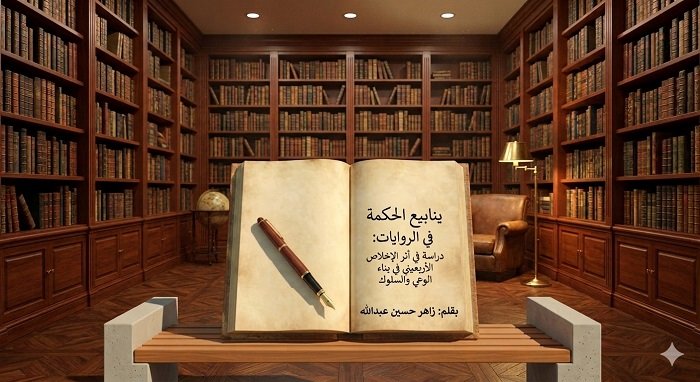 ينابيع الحكمة
في الروايات:
دراسة في أثر الإخلاص
الأربعيني في بناء
الوعي والسلوك
بقلم: زاهر حسين عبدالله